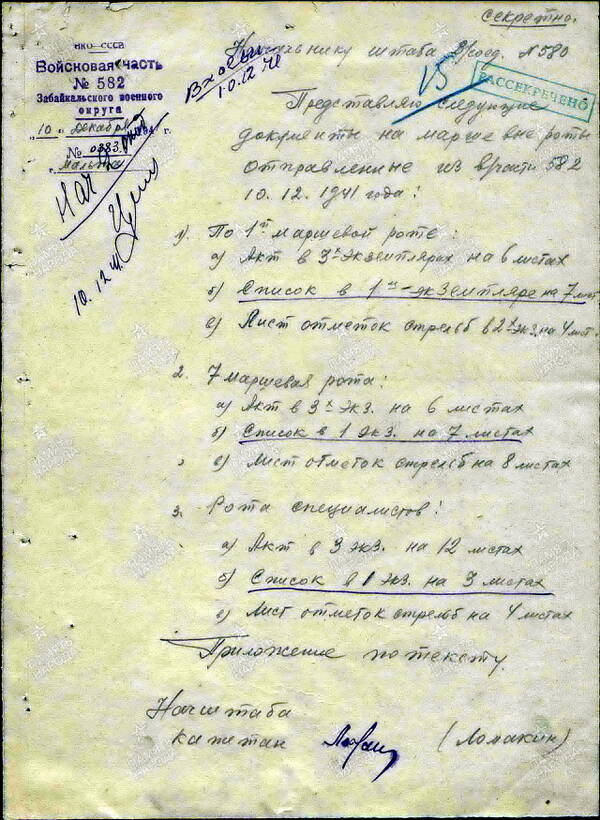 секретно.
НКО–СССР
Войсковая часть
№ 582
Забайкальского военного
округа
„10„ декабря 1941 г.
№ 0383.
г. Мальта
Входящ
10.12.41
Начальнику штаба в/соед. № 580
РАССЕКРЕЧЕНО
Представляю следующие
документы на маршевые роты
отправленные из в/части 582
10. 12. 1941 года:
10.12.41.
1). По 1й маршевой роте:
а) Акт в 3х экземплярах на 6 листах
б) Список в 1м-экземпляре на 7 лист.
в) Лист отметок стрельб в 2х экз. на 4 лист.
2. 7 маршевая рота:
а) Акт в 3х экз. на 6 листах
б) Список в 1 экз. на 7 листах
в) Лист отметок стрельб на 8 листах
3. Рота специалистов:
а) Акт в 3 экз. на 12 листах
б) Список в 1 экз. на 3 листах
в) Лист отметок стрельб на 4 листах
Приложение по тексту.
Начштаба
капитан (Ломакин)